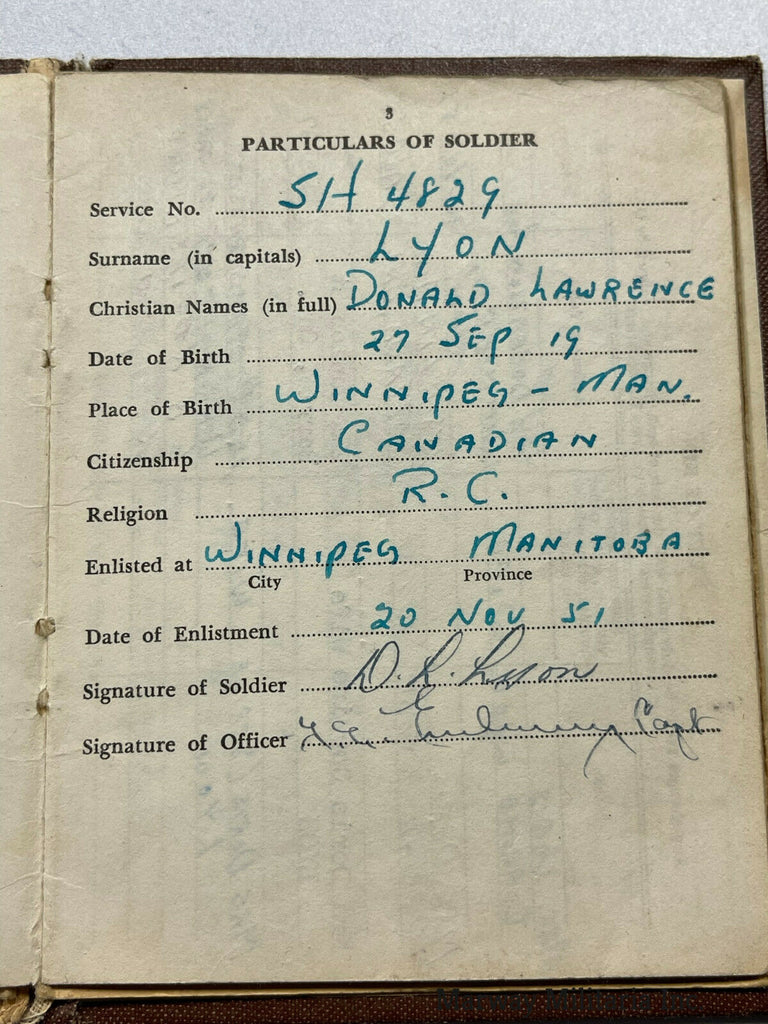 3
PARTICULARS OF SOLDIER
Service No. SH 4829
Surname (in capitals) LYON
Christian Names (in full) DONALD LAWRENCE
Date of Birth 27 SEP 19
Place of Birth WINNIPEG - MAN.
Citizenship CANADIAN
Religion R.C.
Enlisted at WINNIPEG MANITOBA
City Province
Date of Enlistment 20 NOV 51
Signature of Soldier D. L. Lyon
Signature of Officer Capt